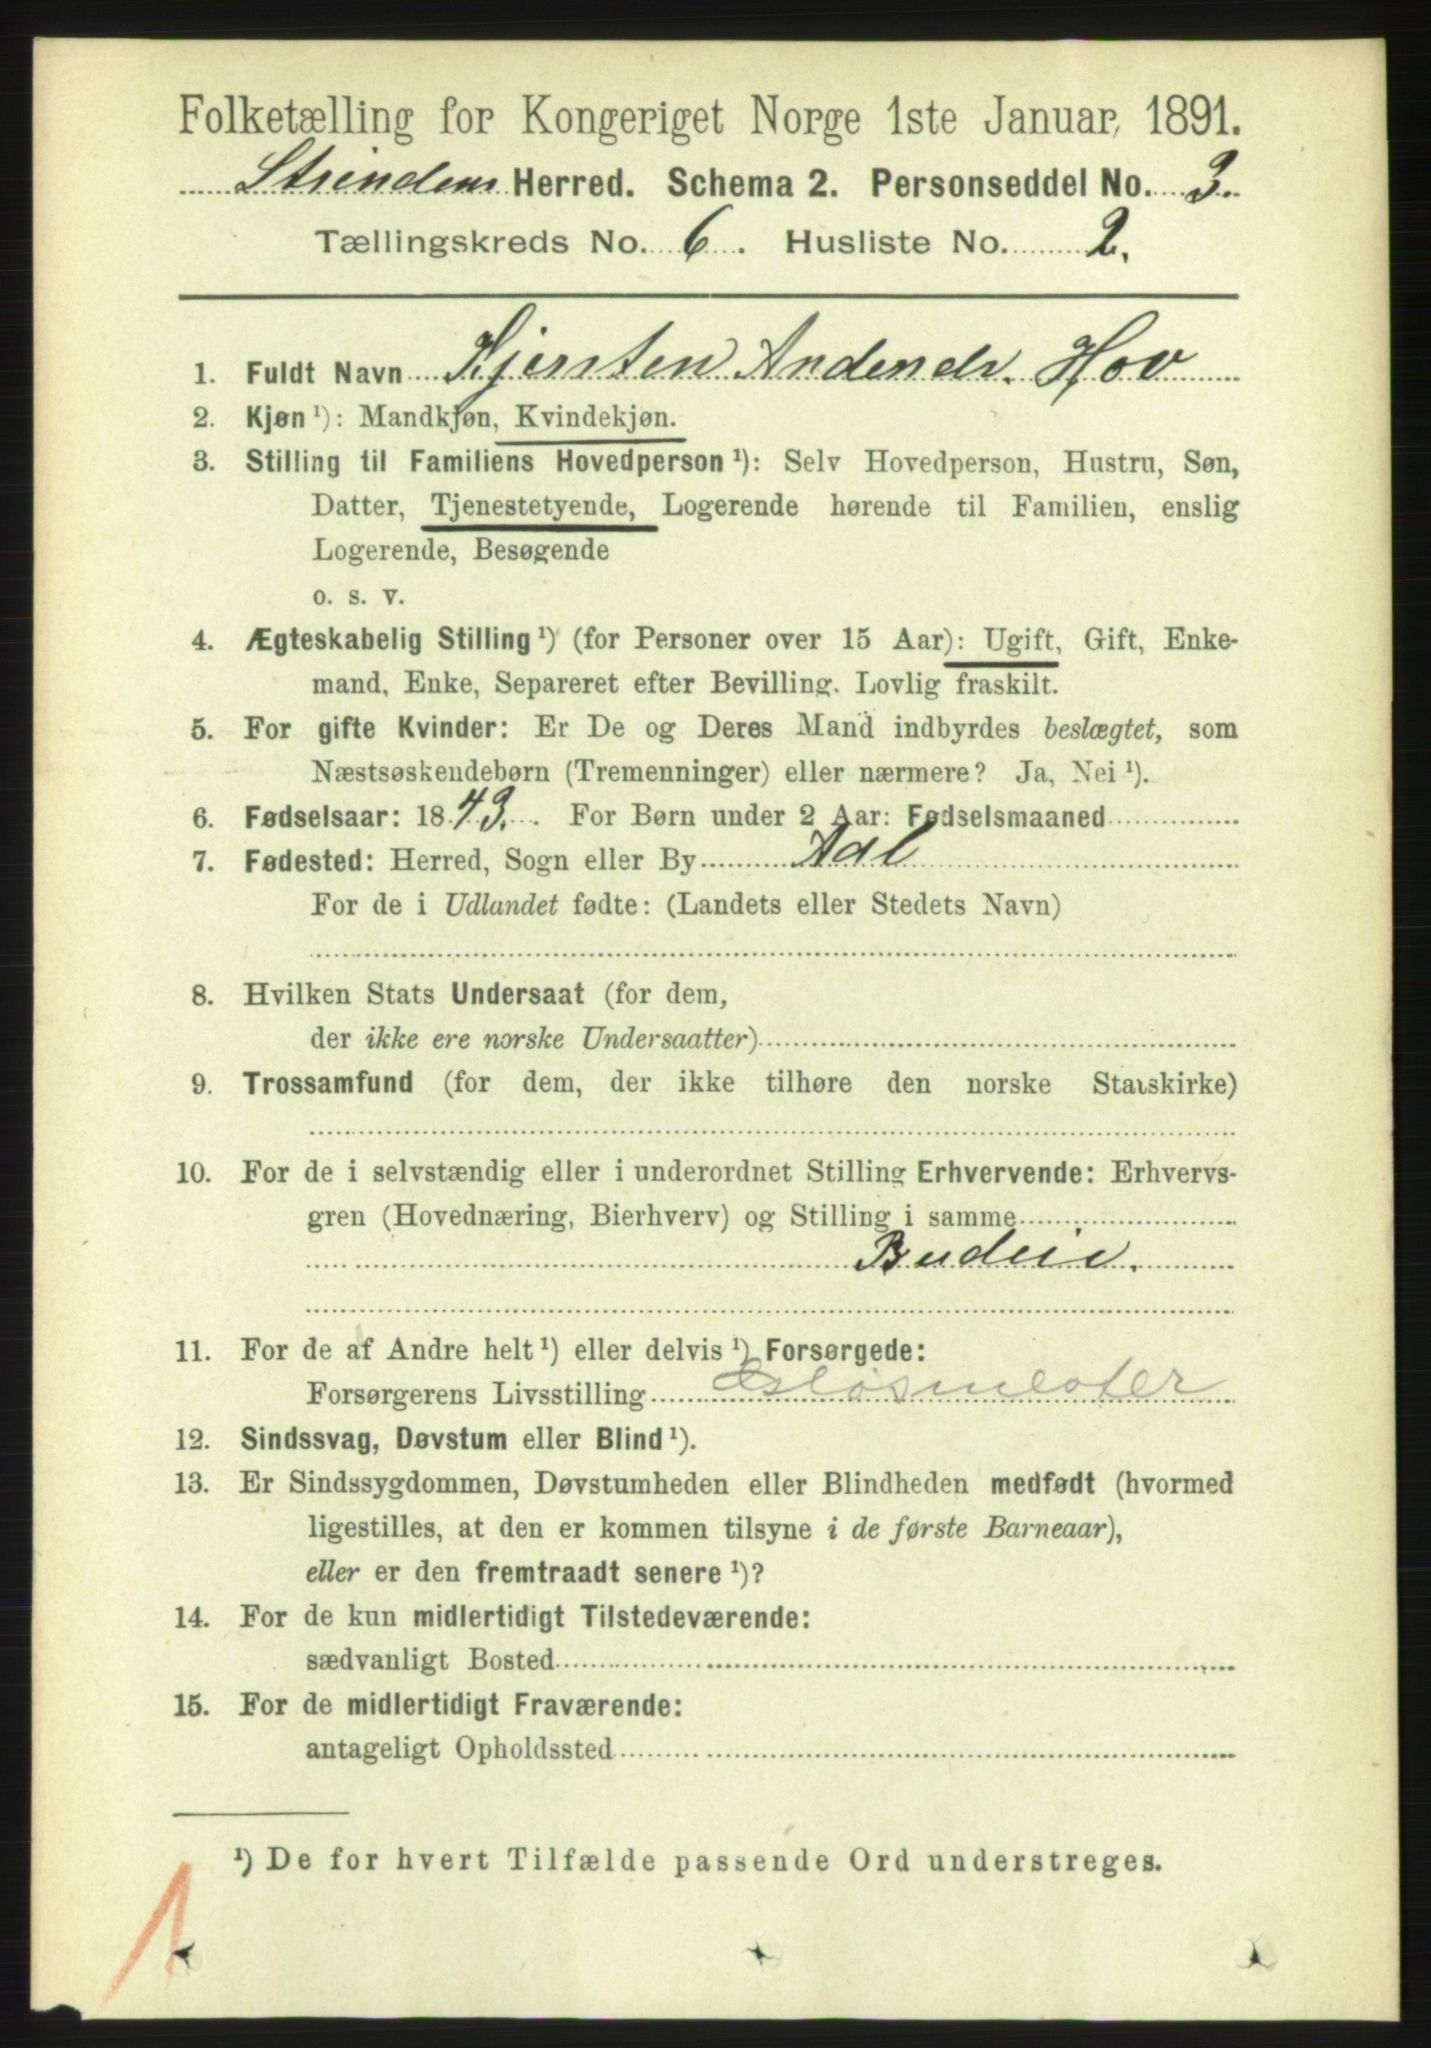 Folketælling for Kongeriget Norge 1ste Januar, 1891.
Strindens Herred. Schema 2. Personseddel No. 3.
Tællingskreds No. 6. Husliste No. 2.
1. Fuldt Navn Kjersten Andendr. Hov
2. Kjøn ¹): Mandkjøn, Kvindekjøn.
3. Stilling til Familiens Hovedperson ¹): Selv Hovedperson, Hustru, Søn,
Datter, Tjenestetyende, Logerende hørende til Familien, enslig
Logerende, Besøgende
o. s. v.
4. Ægteskabelig Stilling ¹) (for Personer over 15 Aar): Ugift, Gift, Enke-
mand, Enke, Separeret efter Bevilling. Lovlig fraskilt.
5. For gifte Kvinder: Er De og Deres Mand indbyrdes beslægtet, som
Næstsøskendebørn (Tremenninger) eller nærmere? Ja, Nei ¹).
6. Fødselsaar: 1843. For Børn under 2 Aar: Fødselsmaaned
7. Fødested: Herred, Sogn eller By Aal
For de i Udlandet fødte: (Landets eller Stedets Navn)
8. Hvilken Stats Undersaat (for dem,
der ikke ere norske Undersaatter)
9. Trossamfund (for dem, der ikke tilhøre den norske Statskirke)
10. For de i selvstændig eller i underordnet Stilling Erhvervende: Erhvervs-
gren (Hovednæring, Bierhverv) og Stilling i samme
Budeie.
11. For de af Andre helt ¹) eller delvis ¹) Forsørgede:
Forsørgerens Livsstilling
12. Sindssvag, Døvstum eller Blind ¹).
13. Er Sindssygdommen, Døvstumheden eller Blindheden medfødt (hvormed
ligestilles, at den er kommen tilsyne i de første Barneaar),
eller er den fremtraadt senere ¹)?
14. For de kun midlertidigt Tilstedeværende:
sædvanligt Bosted
15. For de midlertidigt Fraværende:
antageligt Opholdssted
¹) De for hvert Tilfælde passende Ord understreges.
1